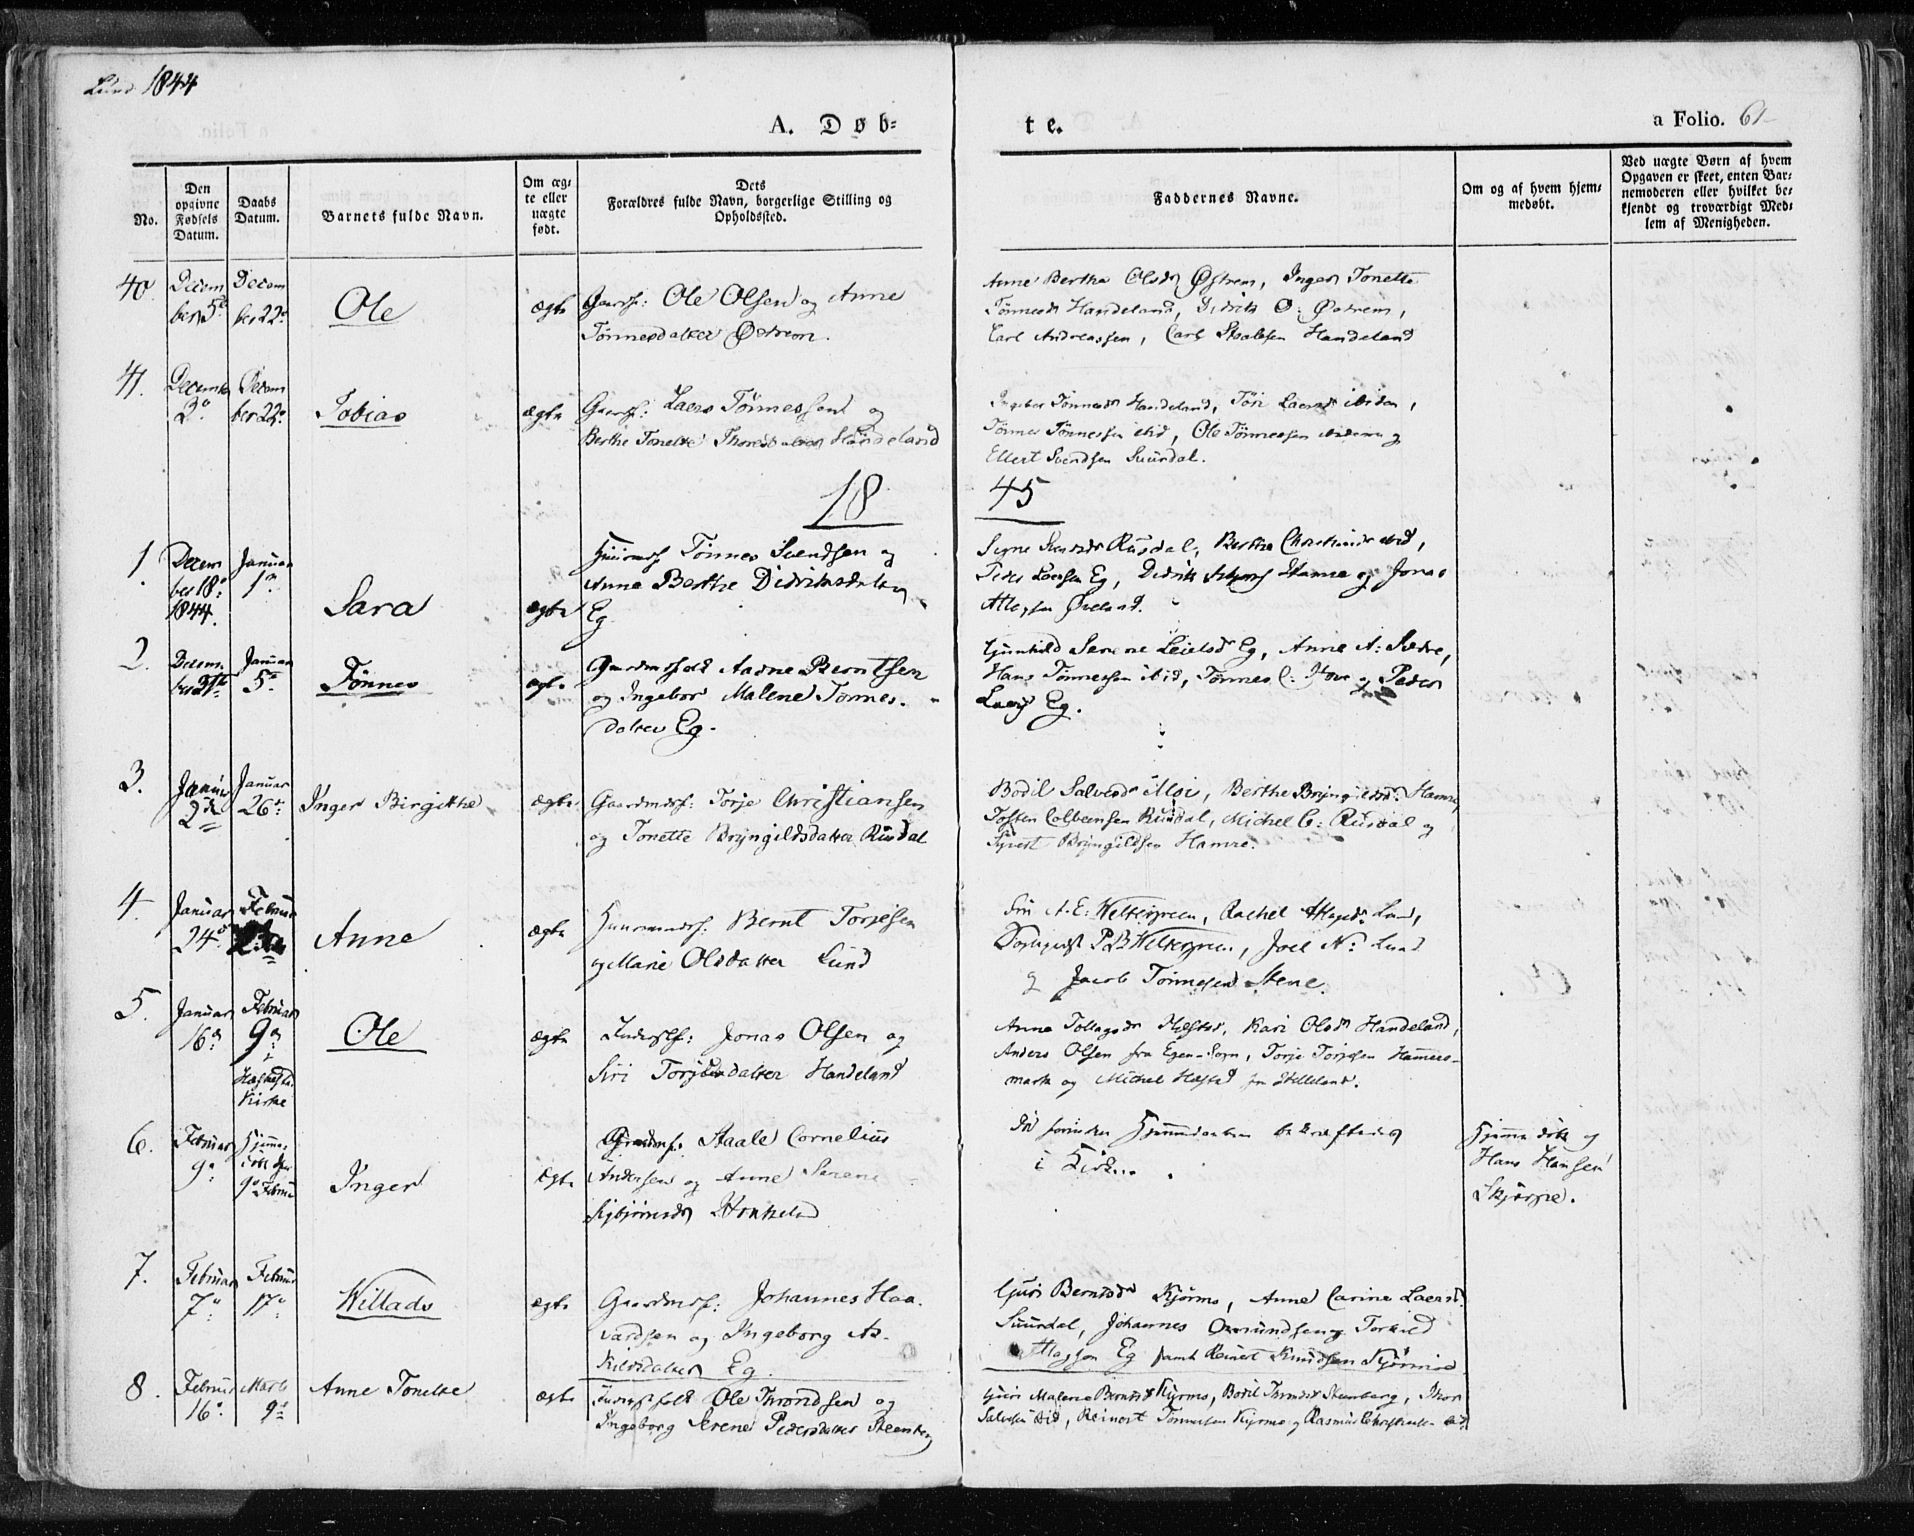 Lund 1844
A. Døb=
te.
a Folio. 61
No.
Den opgivne Fødsels Datum.
Daabs Datum.
Barnets fulde Navn.
Om æg= te eller uægte født.
Dets Forældres fulde Navn, borgerlige Stilling og Opholdssted.
Faddernes Navne.
Om og af hvem hjem= medøbt.
Ved uægte Børn af hvem Opgaven er skeet, enten Bar= nemoderen eller hvilket be= kjendt og troværdigt Med= lem af Menigheden.
40.
Decem
ber 5
Decem
ber 22
Ole
ægte
Gaardf: Ole Olsen og Anne
Tønnesdatter Østrem.
Anne Berthe Olsd Østrem, Inger Tonette
Tønnesd Handeland, Didrik O: Østrem,
Carl Andreassen, Carl Handeland
41.
December
3
Decem
ber 22
Tobias
ægte
Gaardf: Laers Tønnessen og
Berthe Tonette Handeland
Ingebor Tønnesd Handeland, Tøri Laersd ibidem,
Tønnes Tønnessen ibid, Ole Tønnessen ibidem og
Ellert Svendsen Suurdal.
18
45
1.
Decem
ber 18
1844.
Januar
1
Sara
ægte
Tønnes Svendsen og
Anne Berthe Didriksdatter
Eg
Signe Rusdal, Berthe ibid,
Peder Laersen Eg, Didrik Hamre og Jonas
Atlagsen
2.
Decem
ber 31
Januar
5
Tønnes
ægte
Gaardmdsfolk Aadne Berntsen
og Ingebor Malene Tønnes.
datter Eg.
Gunhild Serene Eg, Anne A:
Hans Tønnessen ibid, Tønnes og Peder
Laers Eg.
3.
Januar
2
Januar
26
Inger Birgithe
ægte
Gaardmdsf: Torje Christiansen
og Tonette Bryngildsdatter Rusdal
Bodil Salvesd Moi, Berthe Bryngildsd. Hamre,
Tosten Rusdal, Michel C: Rusdal og
Syvert Bryngildsen Hamre.
4.
Januar
24
Februar
Anne
ægte
Huusmandsf. Bernt Torjesen
og Marie Olsdatter Lund
A. E: Weltzgreen, Rachel Atlagsd Lund,
P B Weltzgreen, Joel N: Lund
og Jacob Tønnesen Stene.
5.
Januar
16
Februar
9
i
Kirke
Ole
ægte
Inderstf: Jonas Olsen og
Siri Torjesdatter Handeland
Anna Hæstad, Kari Olsd Handeland,
Anders Olsen fra Egen-Sogn, Torje Torjesen Hammers-
mark og Michel Hæstad fra
6.
Februar
9
Hjemme-
døbt den
9 Februar
Inger
ægte
Gaardmdsf. Staale Cornelius
Andersen og Anne Serene
Sigbjørnsd
bekræftedes
i Kirken.
Hjemmedøbt og
Hans Hansen
Skjærpe.
7.
Februar
7
Februar
17
Willads
ægte
Gaardmdsf: Johannes Haa-
vardsen og Ingeborg As-
kildsdatter Eg.
Guri Berntsd Kjørmo, Anne Carine Laersd.
Suurdal, Johannes Osmundsen, Torkild
Atlagsen Eg samt Reinert Knudsen Kjørmo
8.
Februar
16
Marts
9
Anne Tonette
ægte
Inderstfolk Ole Throndsen og
Ingeborg Serene Pedersdatter Steenberg
Guri Malene Berntsd Kjørmo, Bodil Steenberg,
Salvesen ibid, Reinert Tønnessen Kjørmo og Rasmus Christensen ibid.